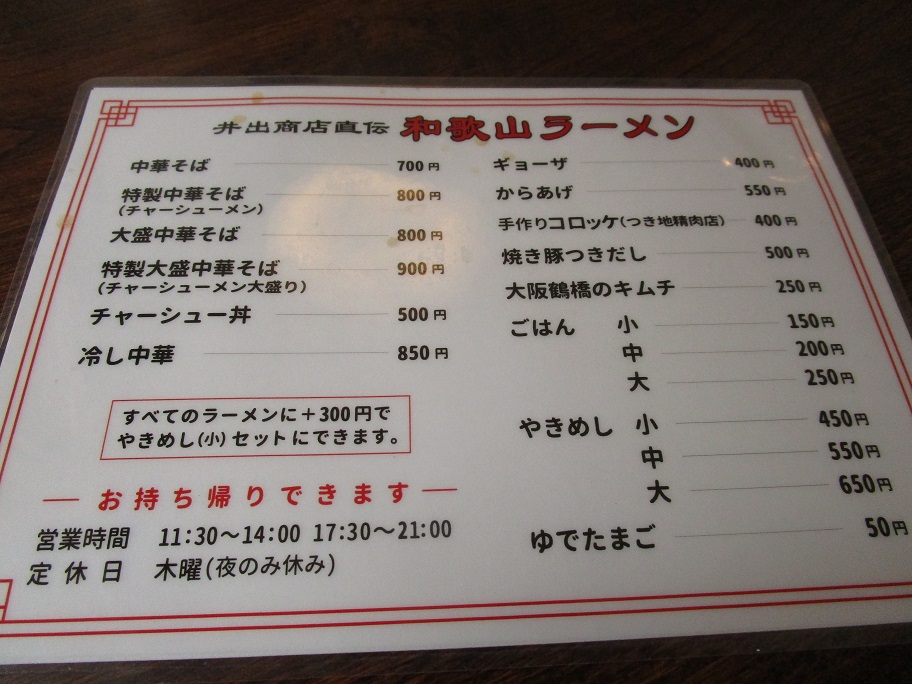 井出商店直伝 和歌山ラーメン
中華そば 700円
特製中華そば 800円
(チャーシューメン)
大盛中華そば 800円
特製大盛中華そば 900円
(チャーシューメン大盛り)
チャーシュー丼 500円
冷し中華 850円
すべてのラーメンに+300円で
やきめし(小)セットにできます。
お持ち帰りできます
営業時間 11:30～14:00 17:30～21:00
定休日 木曜(夜のみ休み)
ギョーザ 400円
からあげ 550円
手作りコロッケ(つき地精肉店) 400円
焼き豚つきだし 500円
大阪鶴橋のキムチ 250円
ごはん 小 150円
中 200円
大 250円
やきめし 小 450円
中 550円
大 650円
ゆでたまご 50円